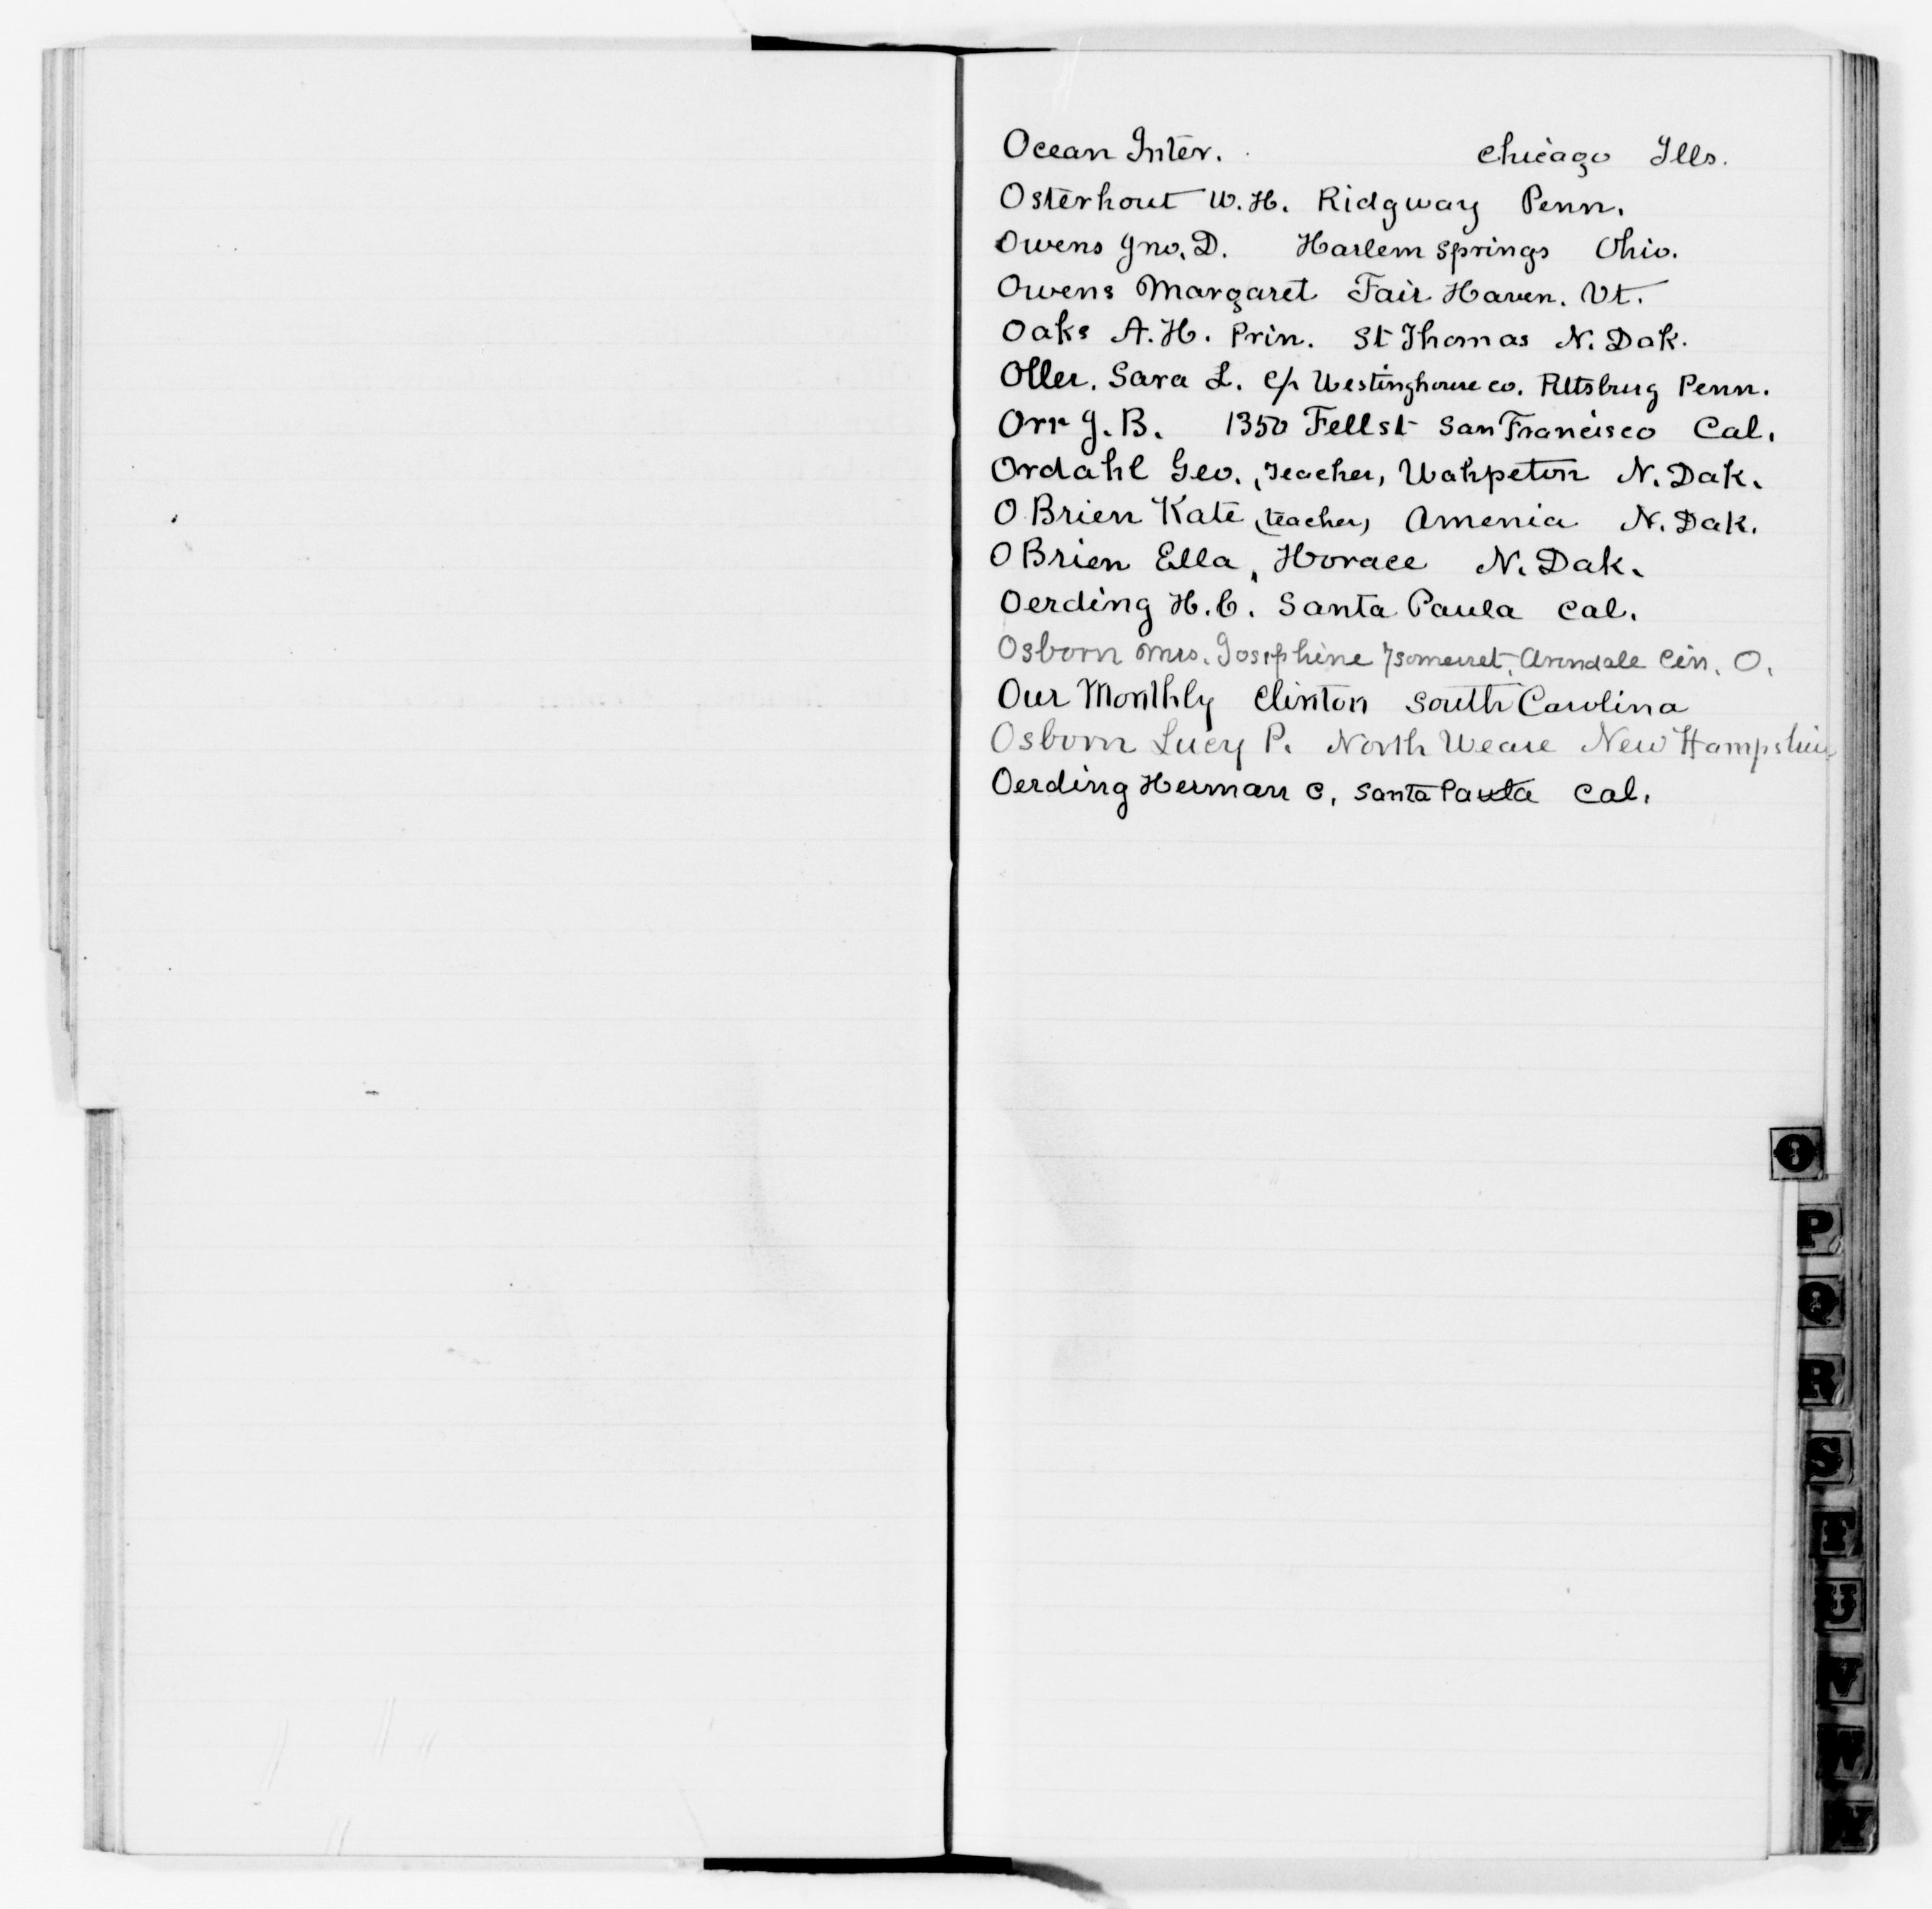 Ocean Inter. Chicago Ills.
Osterhout W. H. Ridgway Penn.
Owens Jno. D. Harlem Springs Ohio.
Owens Margaret Fair Haven. Vt.
Oaks A. H. Prin. St Thomas N. Dak.
Oller. Sara L. c/o Westinghouse co. Pittsburg Penn.
Orr J. B. 1350 Fell st San Francisco Cal.
Ordahl Geo. (Teacher) Wahpeton N. Dak.
O Brien Kate (teacher) Amenia N. Dak.
O Brien Ella, Horace N. Dak.
Oerding H. C. Santa Paula Cal.
Osborn Mrs. Josephine 7 Somerset, Avondale Cin. O.
Our Monthly Clinton South Carolina
Osborn Lucy P. North Weare New Hampshire
Oerding Herman C. Santa Paula Cal.
O
P
Q
R
S
T
U
V
W